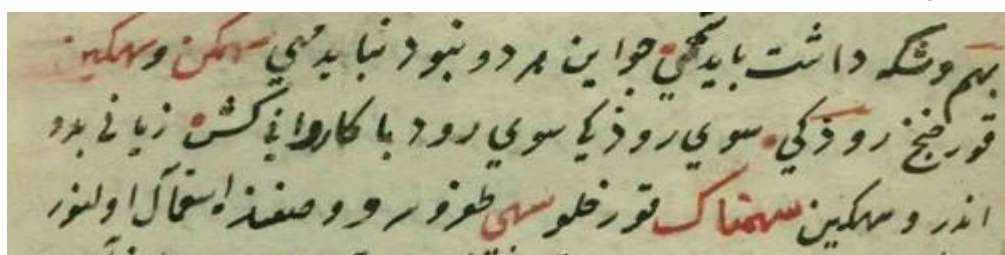 بهم وشكه داشت بايد همي چو اين هر دو نبود نبايد مهي سهمكن وسهمكين
قورخنج روذكي سوي روذكي سوي رود با كارواني كشن زياني بدو
اندر و سهمكين سهمناك قورخلو سهي طوغرو سرو وصفنده استعمال اولنور